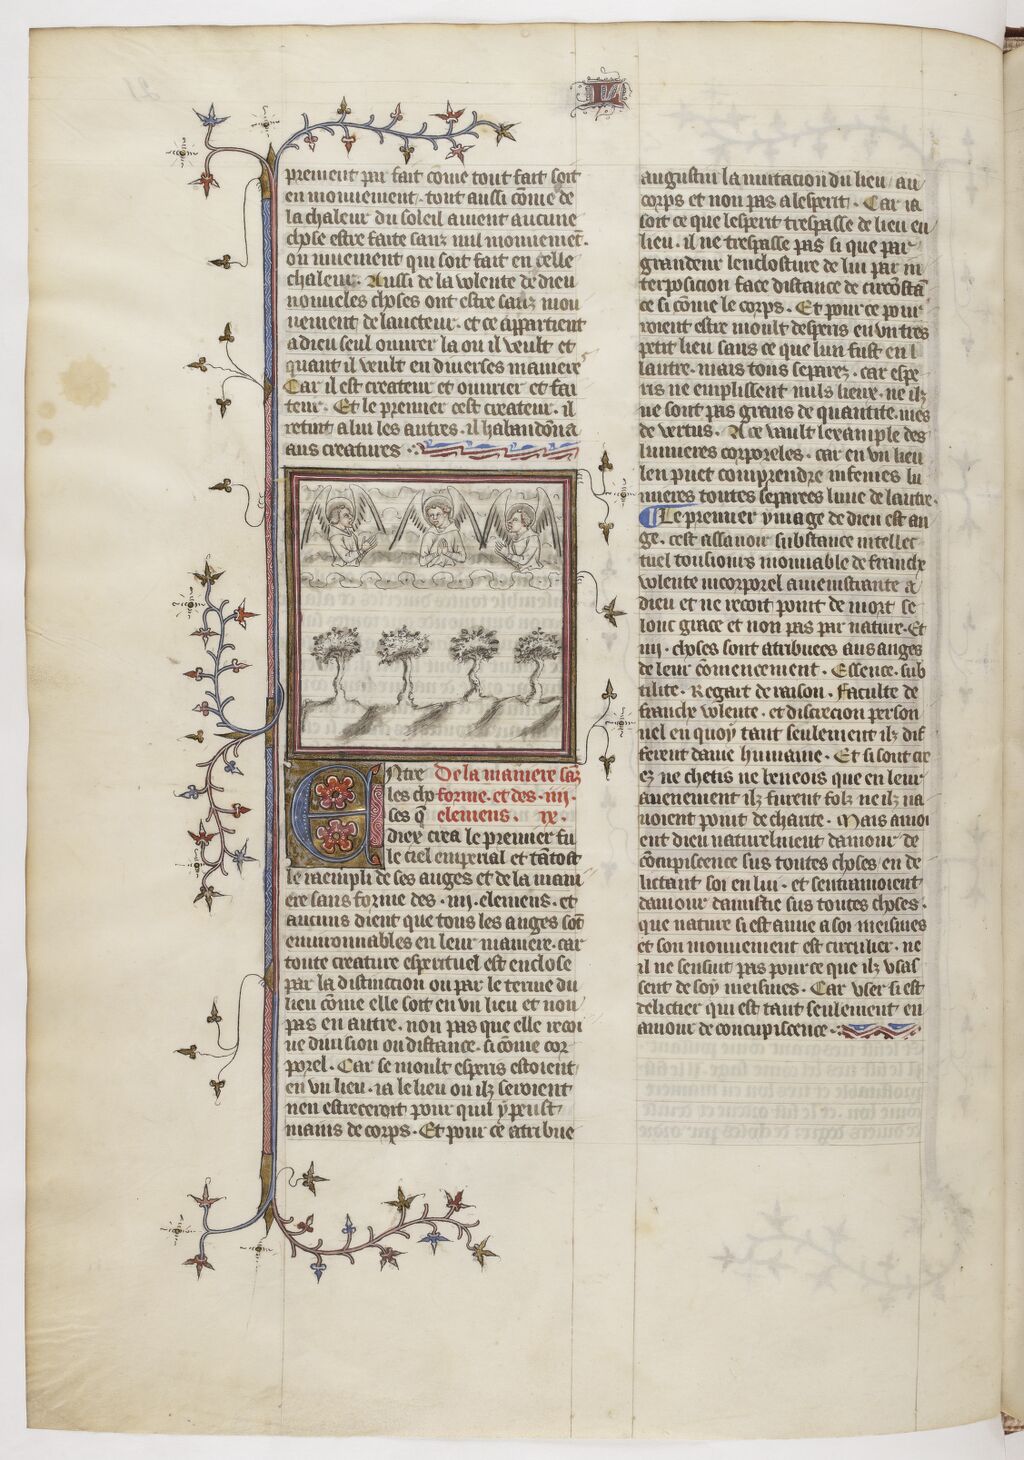 L
prement par fait come tout fait soit
en mouuement. tout aussi come de
la chaleur du soleil auient aucune
chose estre faite sanz nul mouuemet.
ou muement qui soit fait en celle
chaleur. Aussi de la volente de dieu
nouueles choses ont estre sanz mou
uement de laucteur. et ce appartient
a dieu seul ouurer la ou il veult et
quant il veult en diuerses maniere
Car il est createur et ouurier et fai
teur. Et le premier cest createur. il
retint a lui les autres. il habandona
aus creatures.
Ntre De la maniere saz
les cho forme. et des .iiij.
ses q elemens. ix.
diex crea le premier fu
le ciel emperial et tatost
le raempli de ses anges et de la mani
ere sans forme des .iiij. elemens. et
aucuns dient que tous les anges sot
enuironnables en leur maniere. car
toute creature esperituel est enclose
par la distinction ou par le terme du
lieu come elle soit en vn lieu et non
pas en autre. non pas que elle recoi
ue diuision ou distance. si come cor
porel. Car se moult esperis estoient
en vn lieu. ia le lieu ou ilz seroient
nen estreceroit pour quil y peust
mains de corps. Et pour ce atribue
augustin la mutacion du lieu au
corps et non pas a lesperit. Car ia
soit ce que lesperit trespasse de lieu en
lieu. il ne trespasse pas si que par
grandeur lenclosture de lui par in
terposicion face distance de circosta
ce si come le corps. Et pour ce pour
roient estre moult desperis en vn tres
petit lieu sans ce que lun fust en l
lautre. mais tous separez. car espe
ris ne emplissent nuls lieux. ne ilz
ne sont pas grans de quantite. mes
de vertus. A ce vault lexample des
lumieres corporeles. car en vn lieu
len puet comprendre infenies lu
mieres toutes separees lune de lautre.
Le premier ymage de dieu est an
ge. cest assauoir substance intellec
tuel tousiours mouuable de franche
volente incorporel amenistrante a
dieu et ne recoit point de mort se
lonc grace et non pas par nature. Et
iiij. choses sont atribuees aus anges
de leur comencement. Essence. sub
tilite. Regart de raison. Faculte de
franche volente. et discrecion person
nel en quoy tant seulement ilz dif
ferent dame humaine. Et si sont cre
ez ne chetis ne beneois que en leur
auenement ilz furent folz ne ilz na
uoient point de charite. Mais amoi
ent dieu naturelment damour de
compiscence sus toutes choses en de
lictant soi en lui. et sentramoient
damour damistie sus toutes choses.
que nature si est amie a soi meismes
et son mouuement est circulier. ne
il ne sensuit pas pour ce que ilz vsas
sent de soy meismes. Car vser si est
delictier qui est tant seulement en
amour de concupiscence.